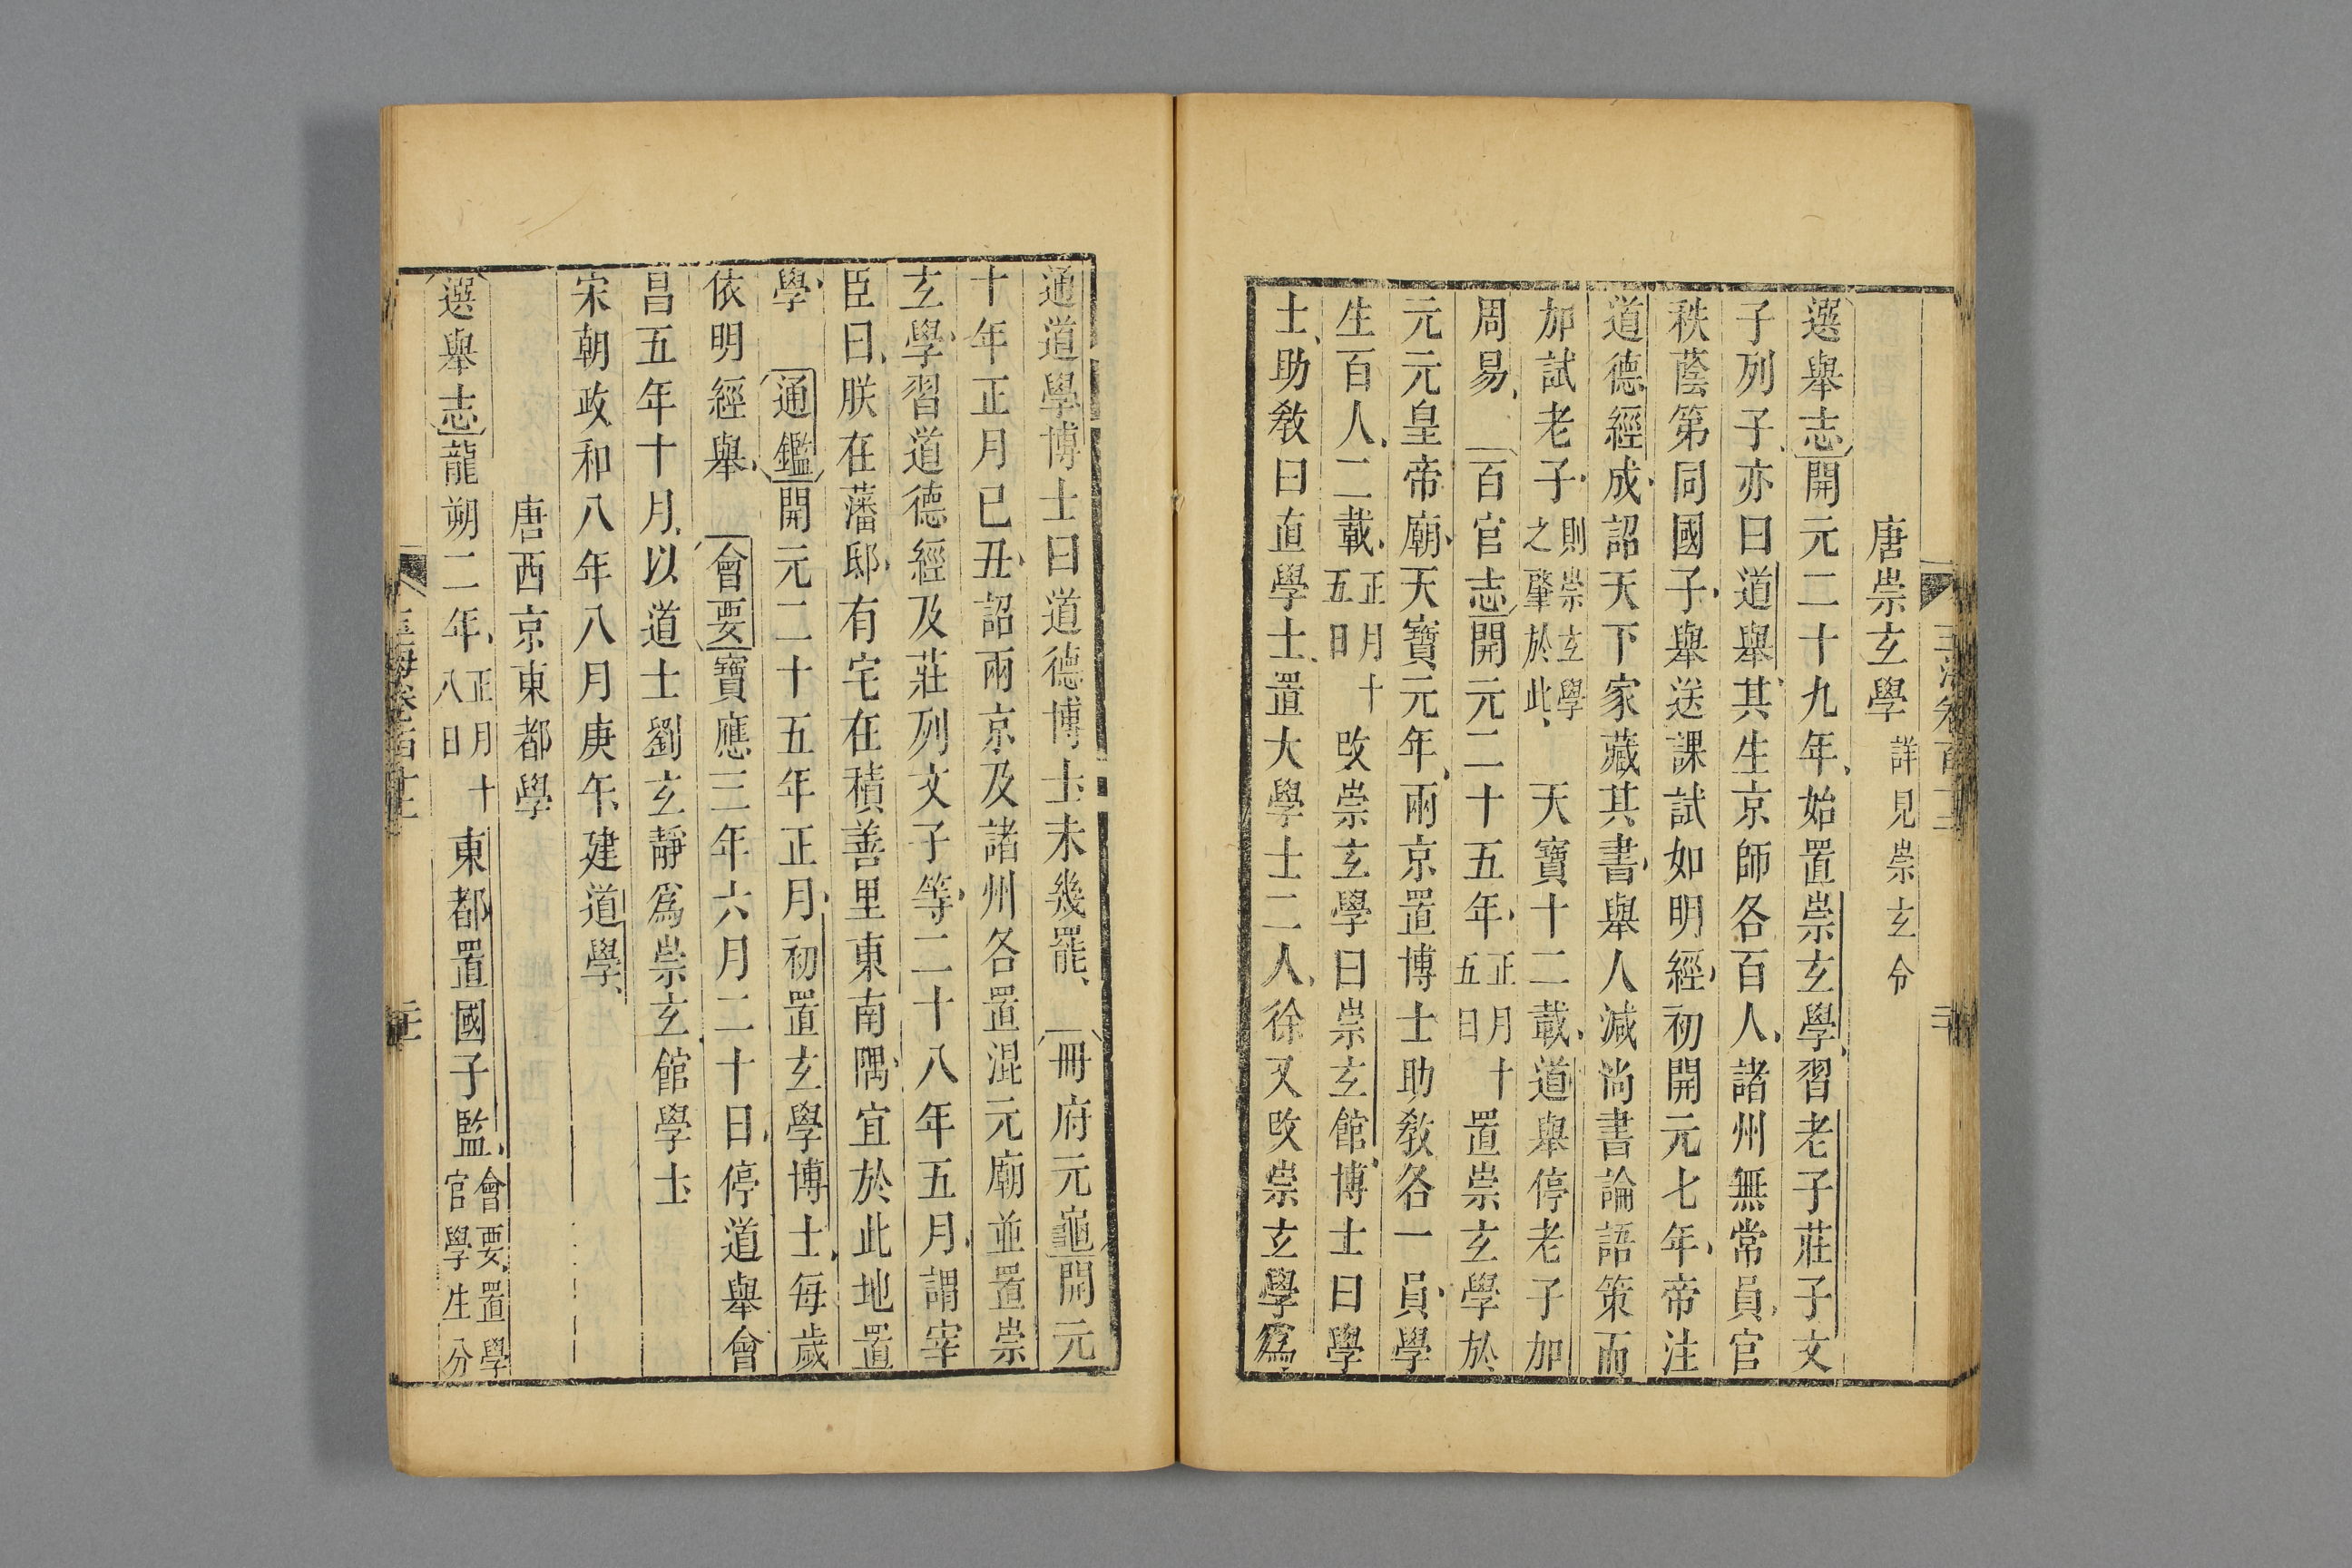 唐崇玄學詳見崇玄令
選舉志開元二十九年始置崇玄學習老子莊子文
子列子亦曰道舉其生京師各百人諸州無常員官
秩蔭第同國子舉送課試如明經初開元七年帝注
道德經成詔天下家藏其書舉人減尚書論語策而
加試老子則崇玄學之肇於此天寶十二載道舉停老子加
周易百官志開元二十五年正月十五日置崇玄學於
元元皇帝廟天寶元年兩京置博士助教各一員學
生百人二載正月十五日改崇玄學曰崇玄館博士曰學
士助教曰直學士置大學士二人徐又改崇玄學爲
通道學博士曰道德博士未幾罷冊府元龜開元
十年正月已丑詔兩京及諸州各置混元廟並置崇
玄學習道德經及莊列文子等二十八年五月謂宰
臣曰朕在藩邸有宅在積善里東南隅宜於此地置
學通鑑開元二十五年正月初置玄學博士每歲
依明經舉會要寶應三年六月二十日停道舉會
昌五年十月以道士劉玄靜爲崇玄館學士
宋朝政和八年八月庚午建道學
唐西京東都學
選舉志龍朔二年正月十八日東都置國子監會要置學官學生分